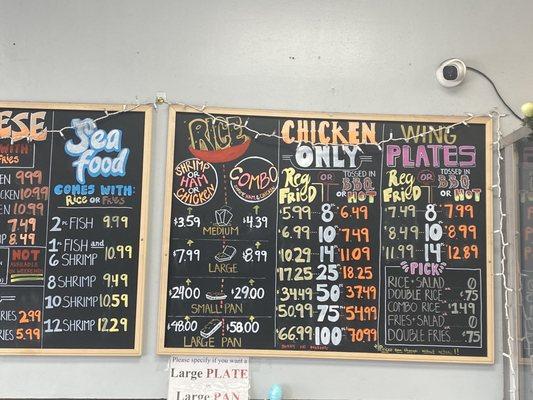 ESE
WITH
999
109
10.99
7.49
8.49
NOT
2.95
5.99
Sea
food
COMES WITH:
RICE OR FRIES
2 FISH 9.99
1 FISH AND
6 SHRIMP 10.99
8 SHRIMP 9.49
10 SHRIMP 10.59
12 SHRIMP 12.29
RICE
SHRIMP
OR
HAM
OR
CHICKEN
COMBO
$3.59 $4.39
MEDIUM
$7.99 $8.99
LARGE
$24.00 $29.00
SMALL PAN
$48.00 $58.00
LARGE PAN
CHICKEN WING
ONLY
Reg OR TOSSED IN
Fried BBQ
OR HOT
5.99 8 6.49
6.99 10 7.49
10.29 14 11.09
17.25 25 18.25
34.49 50 37.49
50.99 75 54.99
66.99 100 70.99
PLATES
Reg OR TOSSED IN
Fried BBQ
OR HOT
7.49 8 7.99
8.49 10 8.99
11.99 14 12.89
PICK
RICE + SALAD 0
DOUBLE RICE .75
COMBO RICE 1.49
FRIES + SALAD 0
DOUBLE FRIES .75
Please specify if you want a
Large PLATE
Large PAN